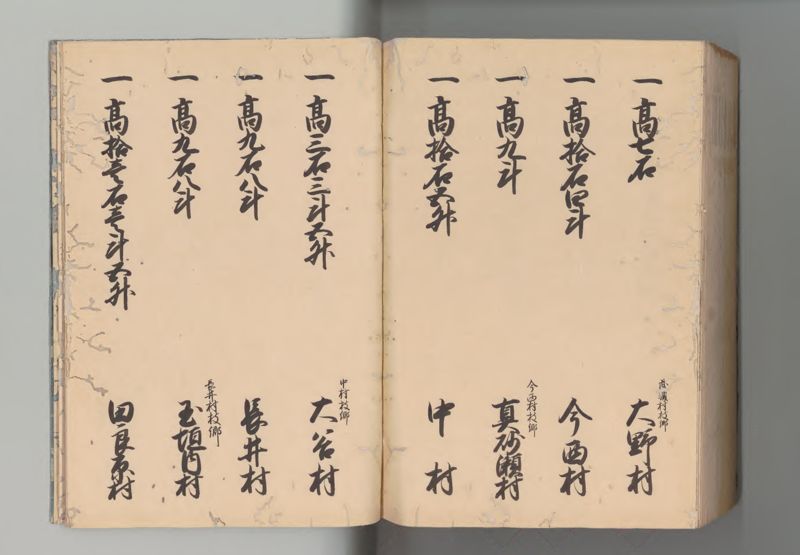 一 高七石
村枝郷
大野村
一 高拾石四斗
今西村
一 高九斗
今西村枝郷
真砂瀬村
一 高拾石五升
中村
一 高三石三斗五升
中村枝郷
大谷村
一 高九石八斗
長井村
一 高九石八斗
長井村枝郷
玉垣内村
一 高拾壱石壱斗五升
田良原村